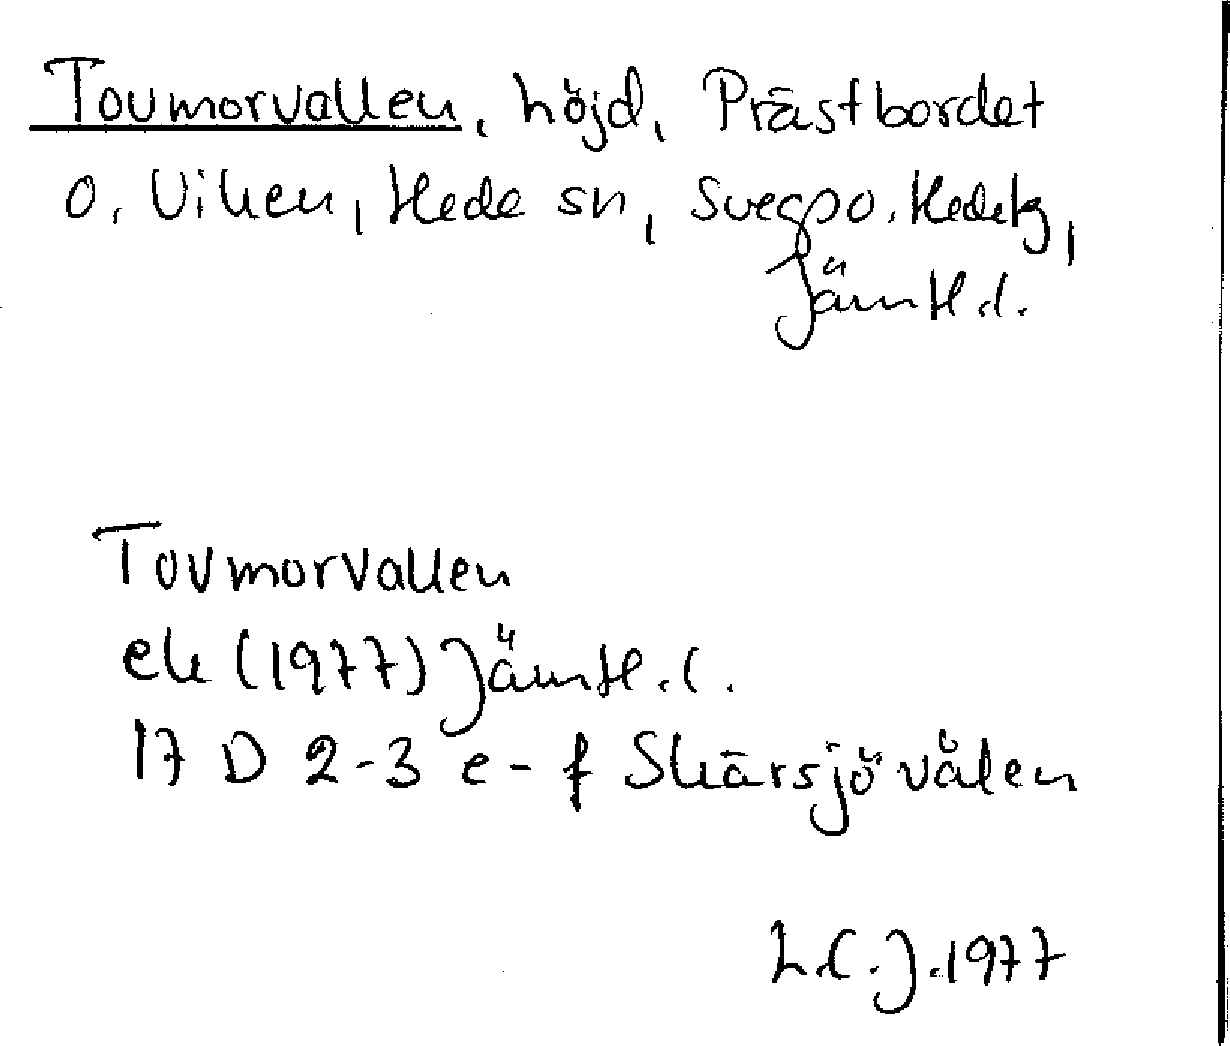 Tovmorvallen, höjd, Prästbordet
o. Viken, Hede sn, Svegs po. Hede tg,
Jämtl. l.
Tovmorvallen
ek (1977) Jämtl. l.
17 D 2-3 e-f Skärsjövålen
L.C.J. 1977